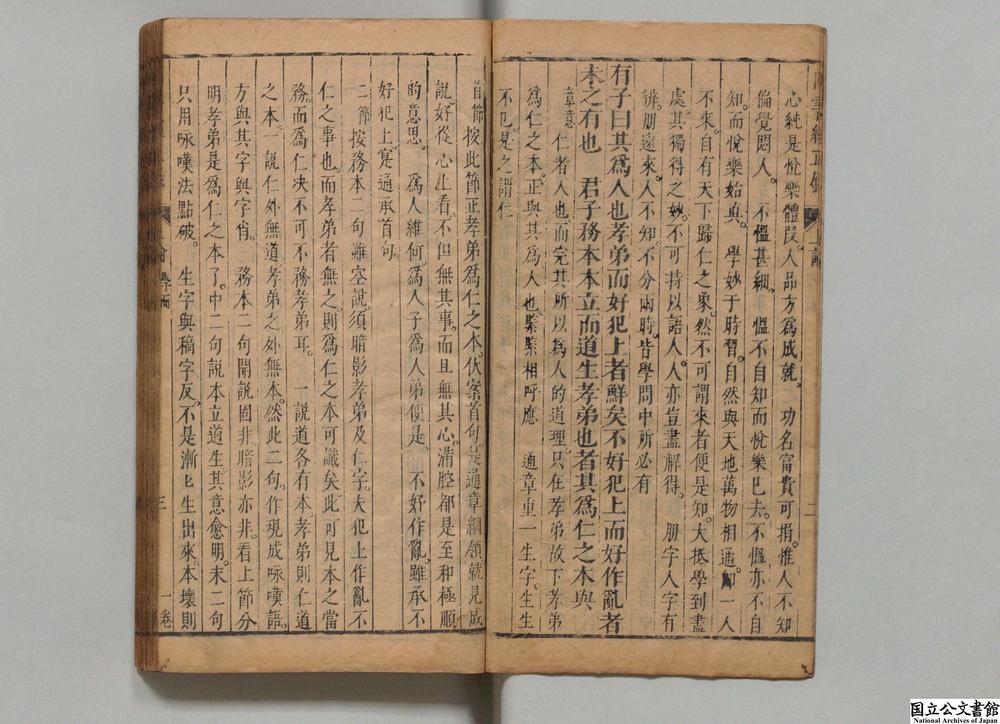 心純是悅樂體段。人品方爲成就。　功名富貴可指。惟人不知
偏覺悶人。　不慍甚細。　慍不自知而悅樂已去。不慍亦不自
知。而悅樂始眞。　學妙于時習。自然與天地萬物相通。一人
不來。自有天下歸仁之象。然不可謂來者便是知。大抵學到盡
處。其獨得之妙。不可持以語人。人亦豈盡解得。　朋字人字有
辨。朋遠來。人不知。不分兩時。皆學問中所必有
有子曰其爲人也孝弟而好犯上者鮮矣不好犯上而好作亂者
未之有也　君子務本本立而道生孝弟也者其爲仁之本與
章意　仁者人也。而完其所以爲人的道理。只在孝弟。故下孝弟
爲仁之本。正與其爲人也。緊緊相呼應　通章重一生字。生生
不已。是之謂仁
首節　按此節正孝弟爲仁之本。伏案首句。是通章綱領。就見成
說。好從心上看。不但無其事。而且無其心。滿腔都是至和極順
的意思。　爲人維何。爲人子爲人弟便是。　不好作亂。雖承不
好犯上。寔通承首句。
二節　按務本二句。雖空說。須暗影孝弟及仁字。夫犯上作亂。不
仁之事也。而孝弟者無之。則爲仁之本可識矣。此可見本之當
務。而爲仁決不可不務孝弟耳。　一說道各有本。孝弟則仁道
之本。一說仁外無道。孝弟之外無本。然此二句。作現成咏嘆語。
方與其字與字肖。　務本二句開說固非。暗影亦非。看上節分
明孝弟是爲仁之本了。中二句說本立道生。其意愈明。末二句
只用咏嘆法點破。　生字與稿字反。不是漸匕生出來。本壞則
上論
二
上論
學而
三
一卷
国立公文書館
National Archives of Japan